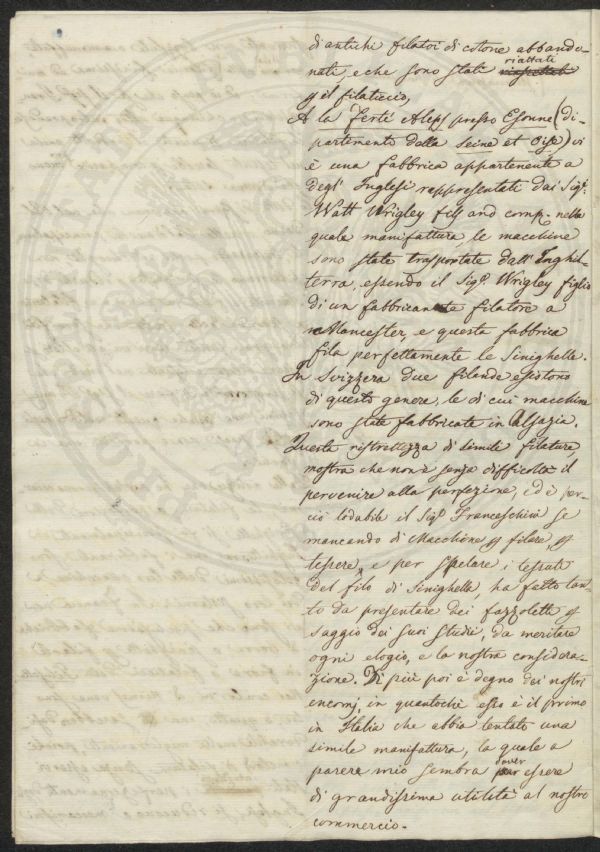 di antichi filatoi di cotone abbando-
nati, e che sono stati riattati
il filaticcio,
A la Ferté Aleps presso Esonne (di-
partimento della Seine et Oise) vi
è una fabbrica appartenente a
degl' Inglesi rappresentati dai Sigri.
Watt Wrigley fils and comp. nella
quale manifattura le macchine
sono state trasportate dall' Inghil-
terra, essendo il Sigr. Wrigley figlio
di un fabbricante filatore a
Mancester, e questa fabbrica
fila perfettamente le Sinighelle.
In Svizzera due filande esistono
di questo genere, le di cui macchine
sono state fabbricate in Alsazia.
Questa ristrettezza di simile filatura,
mostra che non è senza difficoltà il
pervenire alla perfezione, ed è per-
ciò lodabile il Sigr. Franceschini se
mancando di Macchine p filare, p
tessere, e per spelare i tessuti
del filo di Sinighella, ha fatto tan-
to da presentare dei fazzoletti p
saggio dei suoi studii, da meritare
ogni elogio, e la nostra considera-
zione. Di più poi è degno dei nostri
encomj, in quantochè esso è il primo
in Italia che abbia tentato una
simile manifattura, la quale a
parere mio sembra dover essere
di grandissima utilità al nostro
commercio.